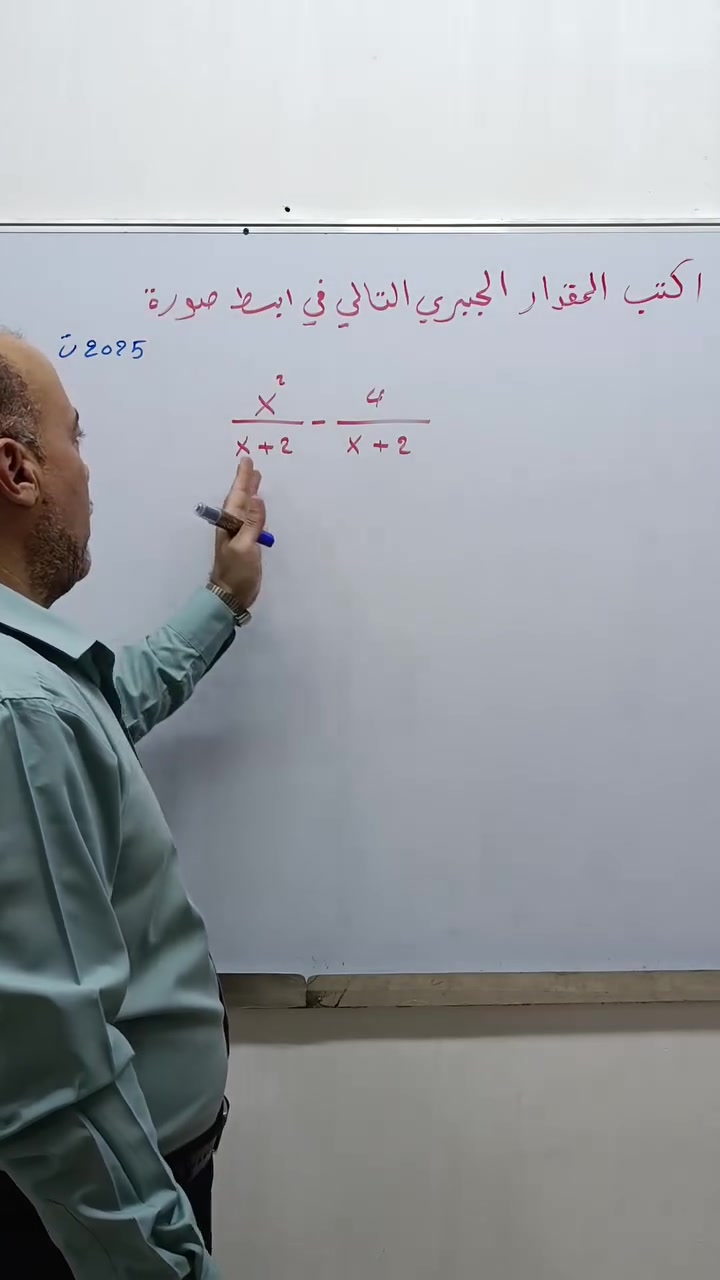 اكتب المقدار الجبري التالي في ابسط صورة
ت 2025
x² / x+2 - 4 / x+2